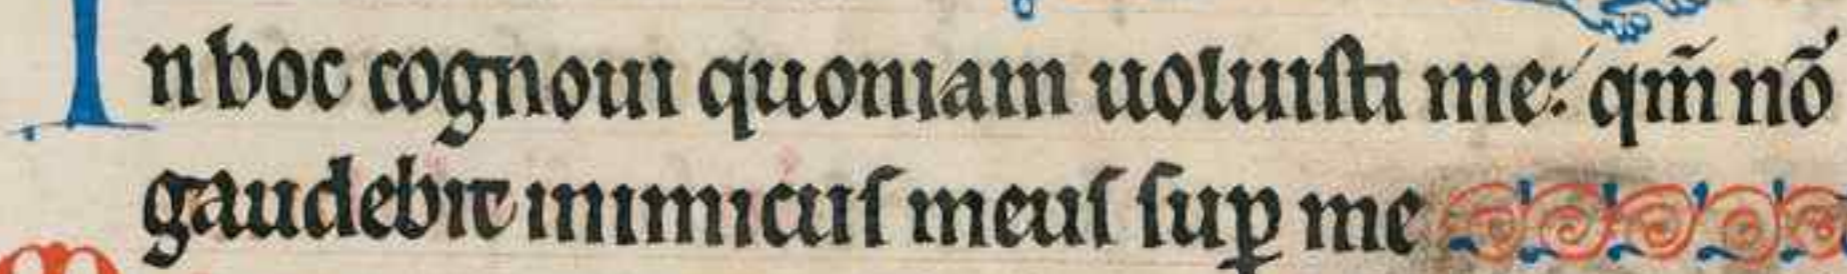 In hoc cognoui quoniam uoluiſti me: qm̅ nō
gaudebit inimicuſ meuſ ſuꝑ me